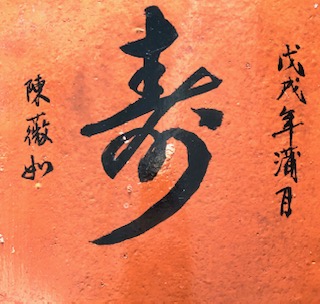 戊戌年蒲月
寿
陳薇如